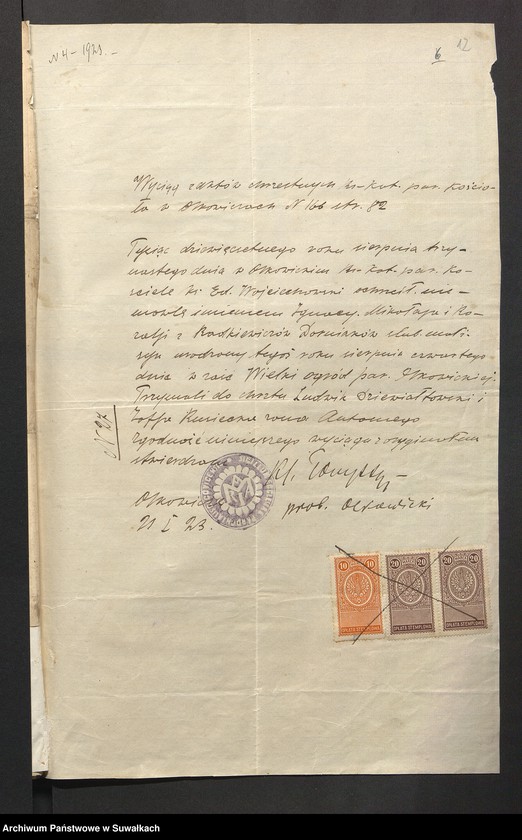 N 4 - 1923. -
6 12
Wyciąg z aktów chrzestnych rz-kat. par. kościo-
ła w Olkowiczach N 166 str. 82
Tysiąc dziewięćsetnego roku sierpnia trzy-
nastego dnia w Olkowickim rz-kat. par. Ko-
ściele ks. Ed. Wojciechowski ochrzcił nie-
mowlę imieniem Ignacy. Mikołaja i Ro-
zalji z Radkiewiczów ślub. małż.
syn urodzony tegoż roku sierpnia czwartego
dnia w zaśc Wielki ogród par. Olkowickiej.
Trzymali do chrztu Ludwik Dziewiałtowski i
Zofja żona Antoniego
Zgodność niniejszego wyciągu z oryginałem
stwierdzam Ks.
N 27
21 I 23.
prob. Olkowicki
10 10
OPŁATA STEMPLOWA
20 20
OPŁATA STEMPLOWA
20 20
OPŁATA STEMPLOWA
Archiwum Państwowe w Suwałkach